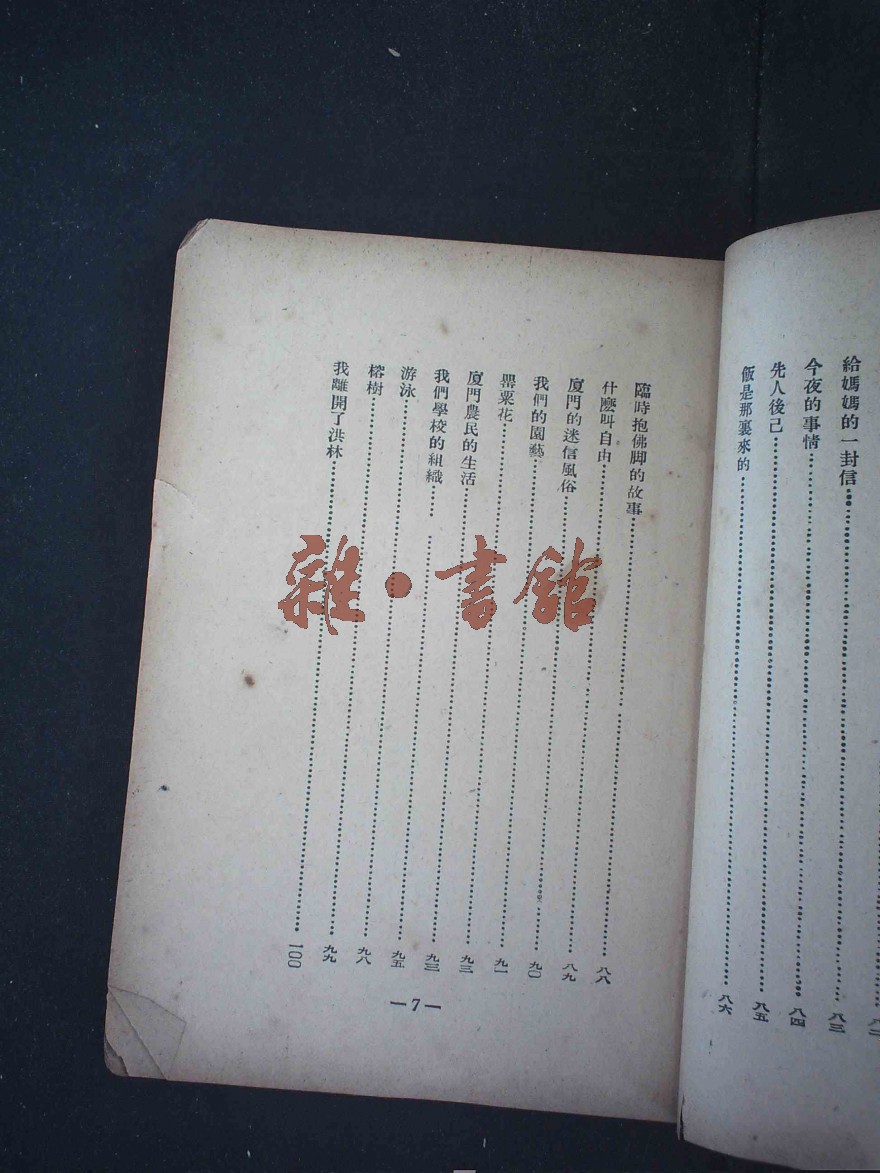 給媽媽的一封信……八三
今夜的事情……八四
先人後己……八五
飯是那裏來的……八六
臨時抱佛脚的故事……八八
什麼叫自由……八九
廈門的迷信風俗……九〇
我們的園藝……九一
罌粟花……九三
廈門農民的生活……九三
我們學校的組織……九五
游泳……九八
榕樹……九九
我離開了洪林……一〇〇
—7—
雜·書館